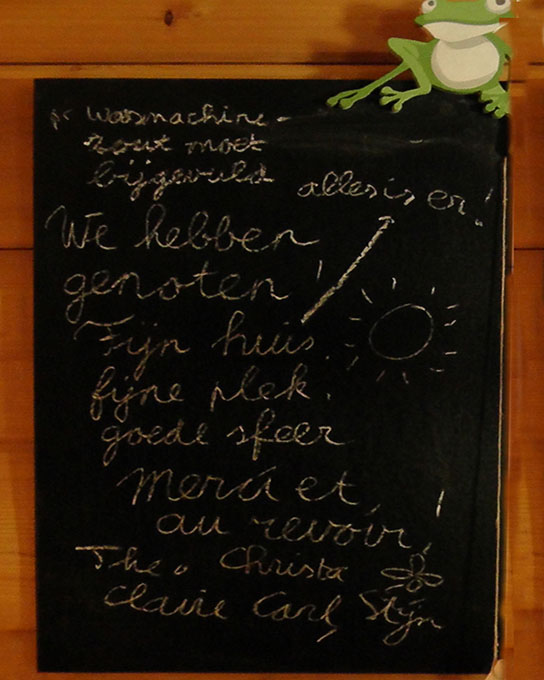 wasmachine-
zout moet
bijgevuld
alles is er!
We hebben
genoten!
Fijn huis.
fijne plek.
goede sfeer
Merci et
au revoir!
Theo Christa
Claire Carl, Stijn